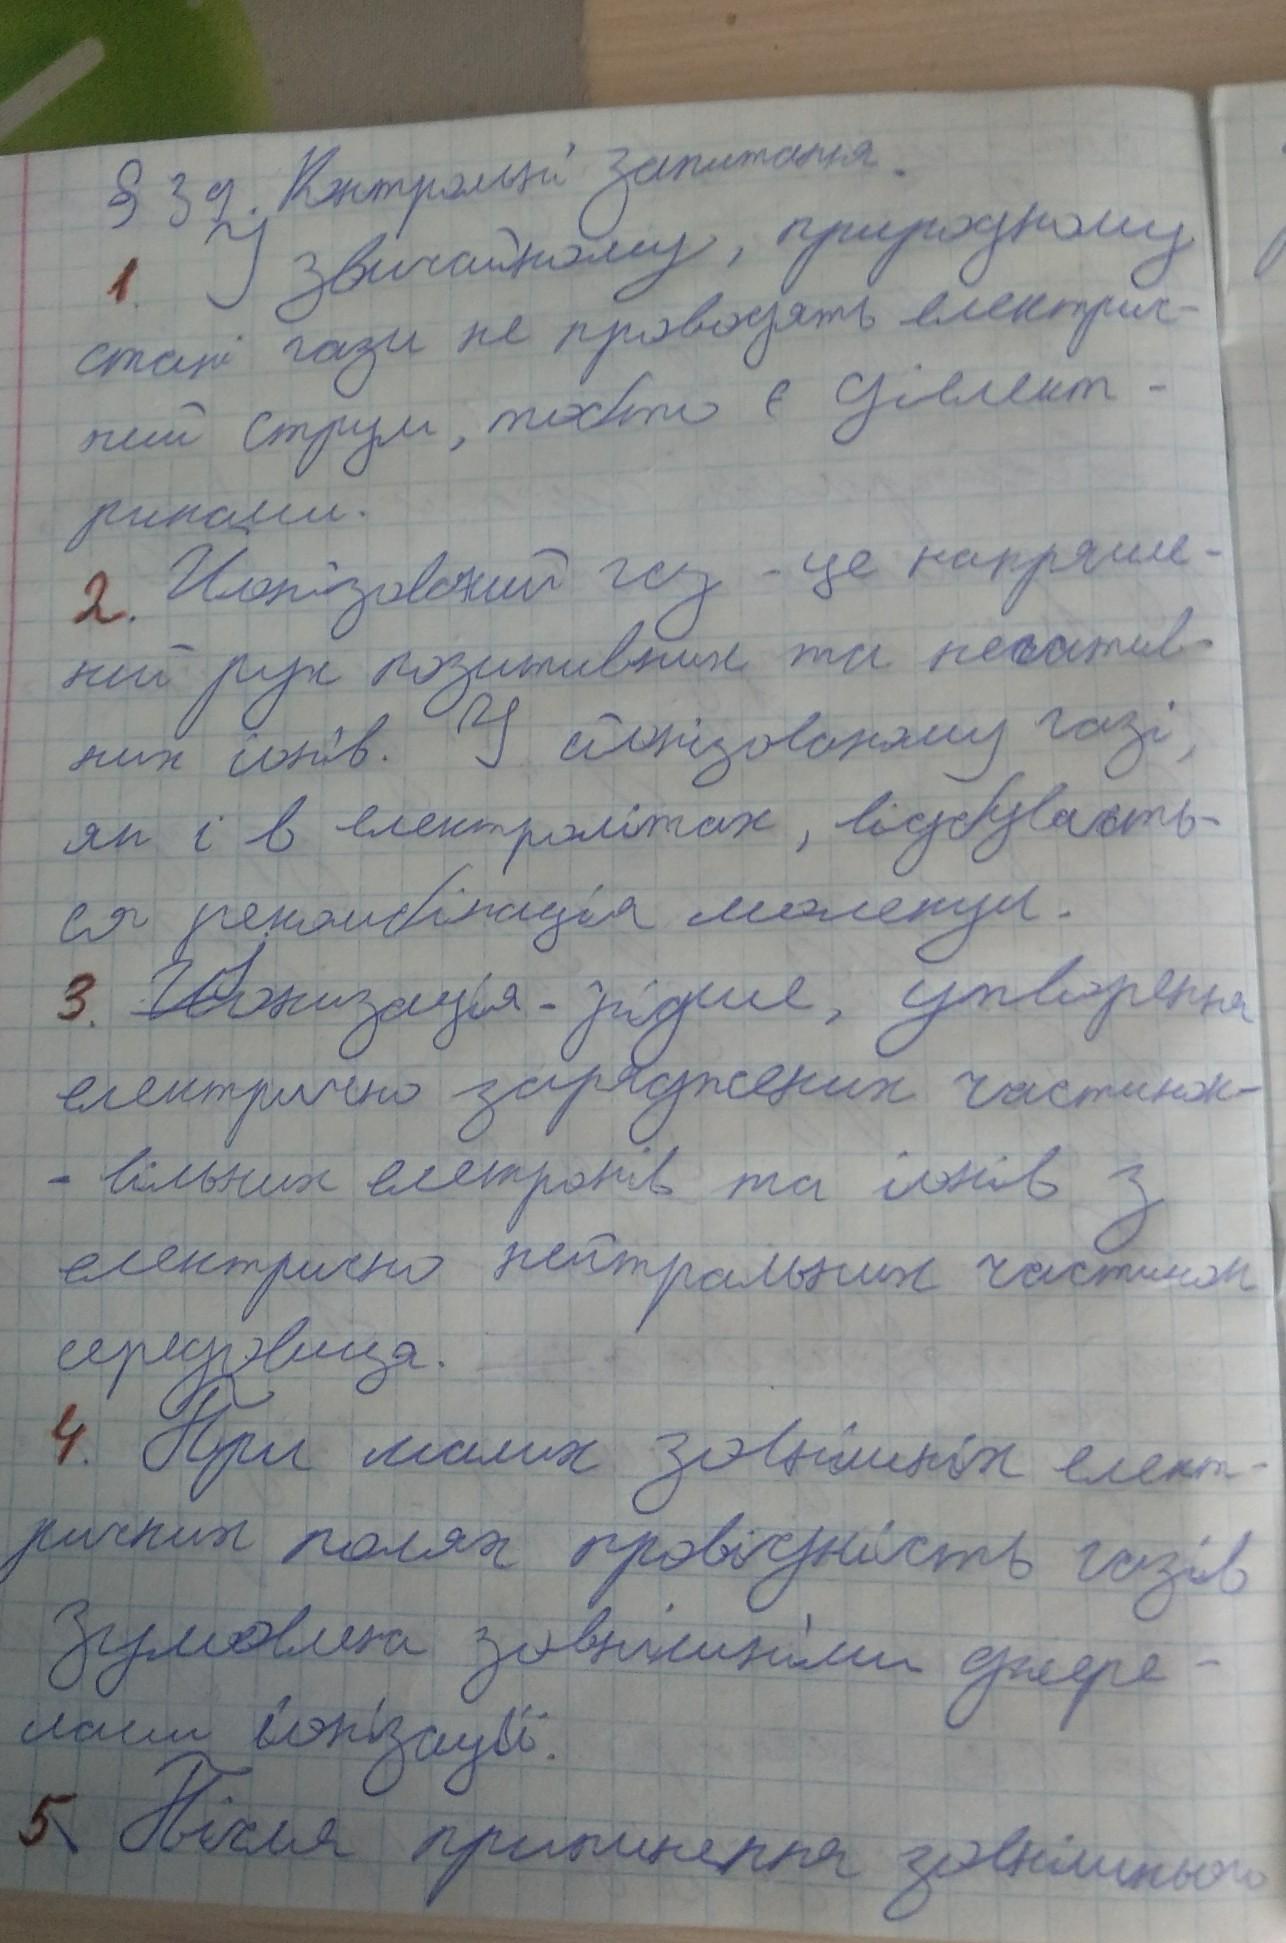 § 39. Контрольні запитання.
1. У звичайному, природному
стані газу не проводять електрич-
ний струм, тобто є діелект-
риками.
2. Йонізований газ - це напрямле-
ний рух позитивних та негатив-
них іонів. У йонізованому газі,
як і в електролітах, відбуваєть-
ся рекомбінація молекул.
3. Йонизація - рідше, утворення
електрично заряджених частинок-
- вільних електронів та іонів з
електрично нейтральних частинок
середовища.
4. При малих зовнішніх елект-
ричних полях провідність газів
Зумовлена зовнішніми джере-
лами іонізації.
5. Після припинення зовнішнього